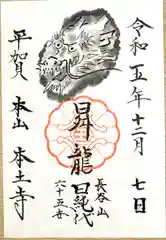 令和五年十二月
七日
長谷山
昇龍
平賀本山本土寺
六十五世